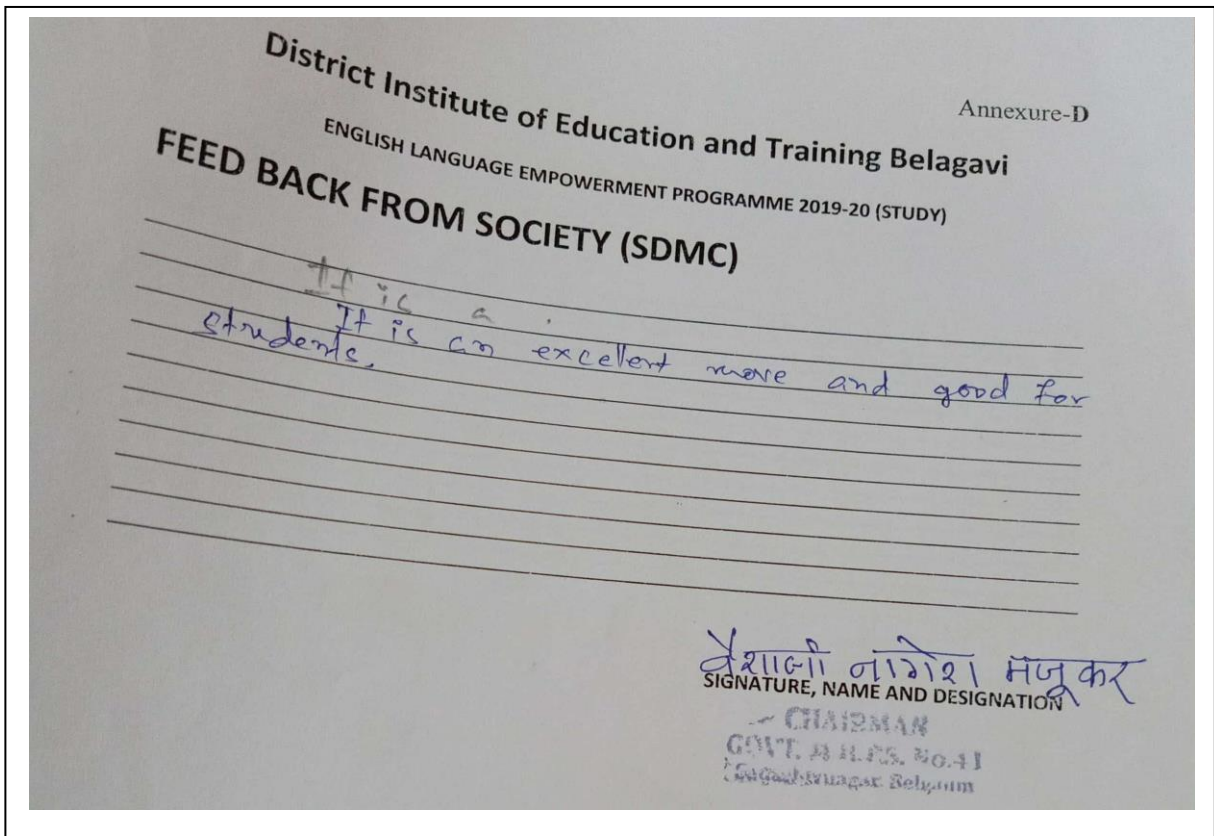 Annexure-D
District Institute of Education and Training Belagavi
ENGLISH LANGUAGE EMPOWERMENT PROGRAMME 2019-20 (STUDY)
FEED BACK FROM SOCIETY (SDMC)
It is a .
It is an excellent move and good for
students.
वैशाली नागेश मंजूकर
SIGNATURE, NAME AND DESIGNATION
CHAIRMAN
GOVT. No.41
Belgaum